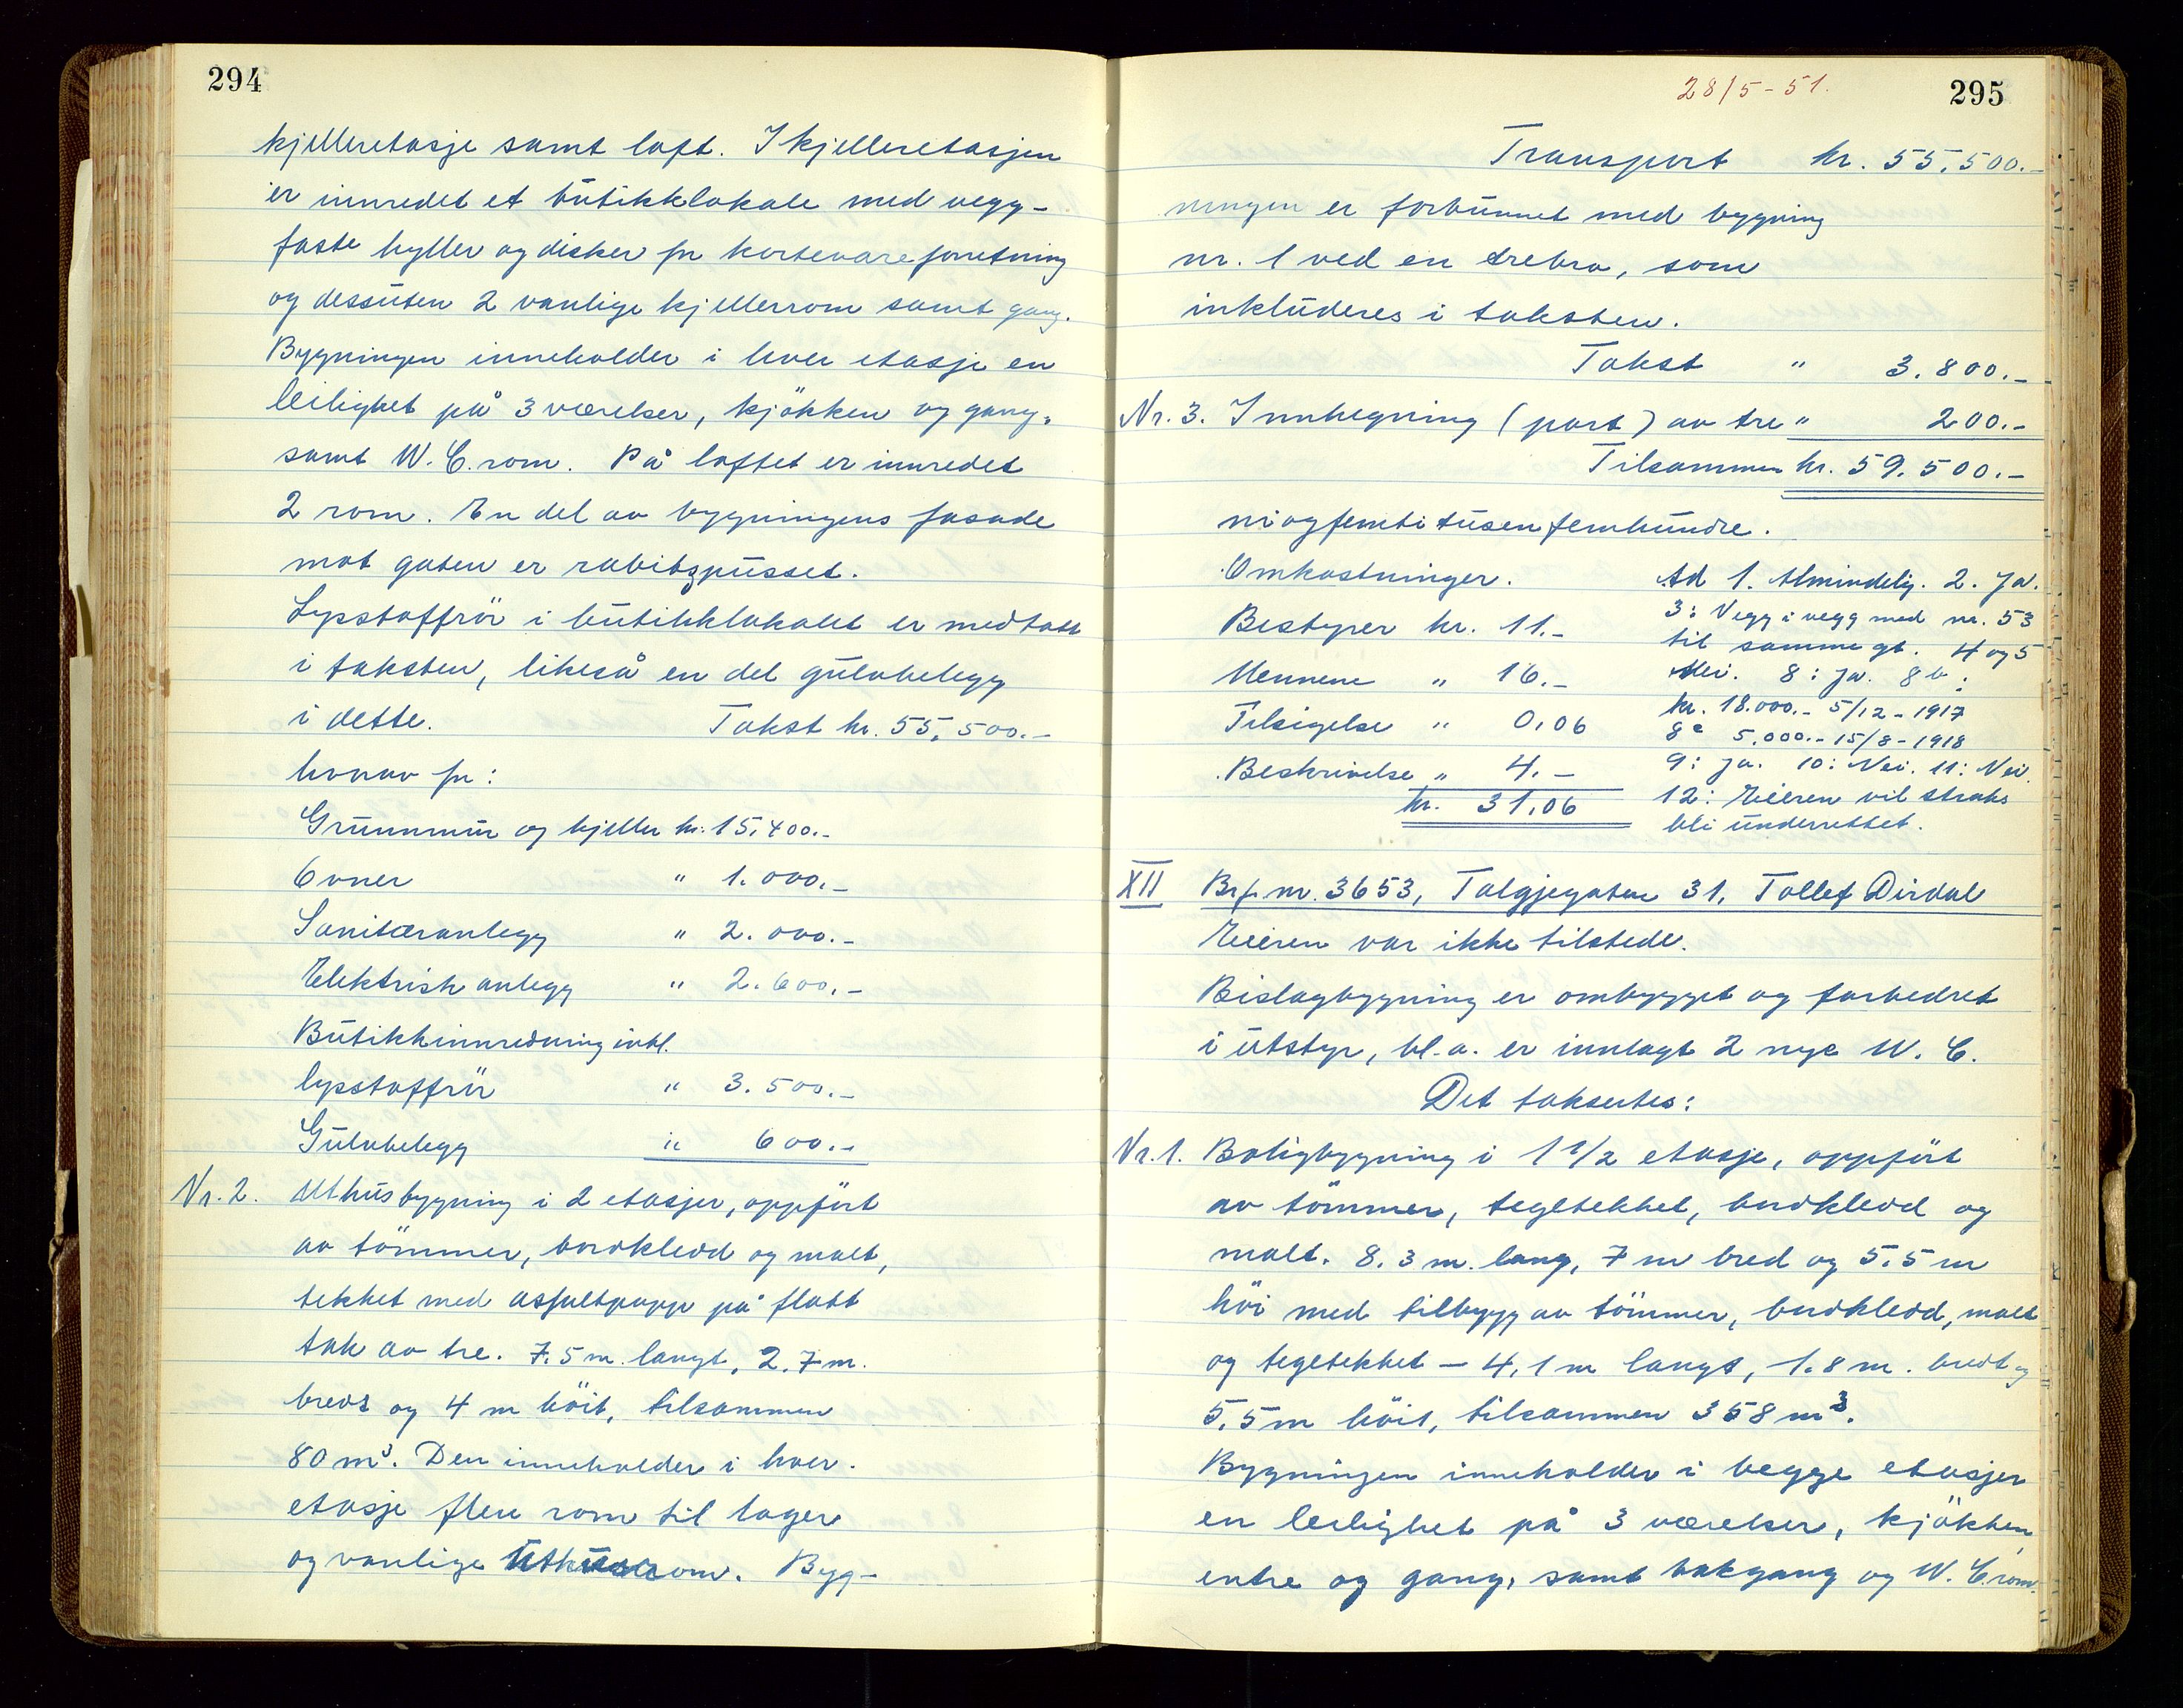 294
kjelleretasje samt loft. I kjelleretasjen
er innredet et butikklokale med vegg-
faste hyller og disker for kortevareforretning
og dessuten 2 vanlige kjellerrom samt gang.
Bygningen inneholder i hver etasje en
leilighet på 3 værelser, kjökken og gang,
samt W.C. rom. På loftet er innredet
2 rom. En del av bygningens fasade
mot gaten er rabitzpusset.
Lysstoffrör i butikklokalet er medtatt
i taksten, likeså en del gulvbelegg
i dette. Takst kr. 55.500.-
hvorav for:
Grunnmur og kjeller kr. 15.400.-
Ovner " 1.000.-
Sanitæranlegg " 2.000.-
Elektrisk anlegg " 2.600.-
Butikkinnredning inkl.
lysstoffrör " 3.500.-
Gulvbelegg " 600.-
Nr. 2. Uthusbygning i 2 etasjer, oppfört
av tömmer, bordkledd og malt,
tekket med asfaltpapp på flatt
tak av tre. 7.5 m. langt, 2.7 m.
bredt og 4 m höit, tilsammen
80 m³. Den inneholder i hver
etasje flere rom til lager
og vanlige uthusrom. Byg-
28/5-51. 295
Transport kr. 55.500.-
ningen er forbunnet med bygning
nr. 1 ved en trebro, som
inkluderes i taksten.
Takst " 3.800.-
Nr. 3. Innhegning (port) av tre " 200.-
Tilsammen kr. 59.500.-
niogfemtitusenfemhundre.
Omkostninger.
Bestyrer kr. 11.-
Mennene " 16.-
Tilsigelse " 0,06
Beskrivelse " 4.-
kr. 31,06
Ad 1. Almindelig. 2. Ja.
3: Vegg i vegg med nr. 53
til samme gt. 4 og 5
Nei. 8: Ja. 8 b:
kr. 18.000.- 5/12-1917
8c 5.000.- 15/8-1918
9: Ja. 10: Nei. 11: Nei.
12: Eieren vil straks
bli underrettet.
XII Br.f. nr. 3653, Talgjegaten 31, Tollef Dirdal
Eieren var ikke tilstede.
Bislagbygning er ombygget og forbedret
i utstyr, bl.a. er innlagt 2 nye W.C.
Det taksertes:
Nr. 1. Boligbygning i 1 1/2 etasje, oppfört
av tömmer, tegltekket, bordkledd og
malt. 8.3 m. lang, 7 m bred og 5.5 m
höi med tilbygg av tömmer, bordkledd, malt
og tegltekket - 4,1 m langt, 1.8 m. bredt og
5,5 m höit, tilsammen 358 m³.
Bygningen inneholder i begge etasjer
en leilighet på 3 værelser, kjökken,
entre og gang, samt bakgang og W.C. rom.